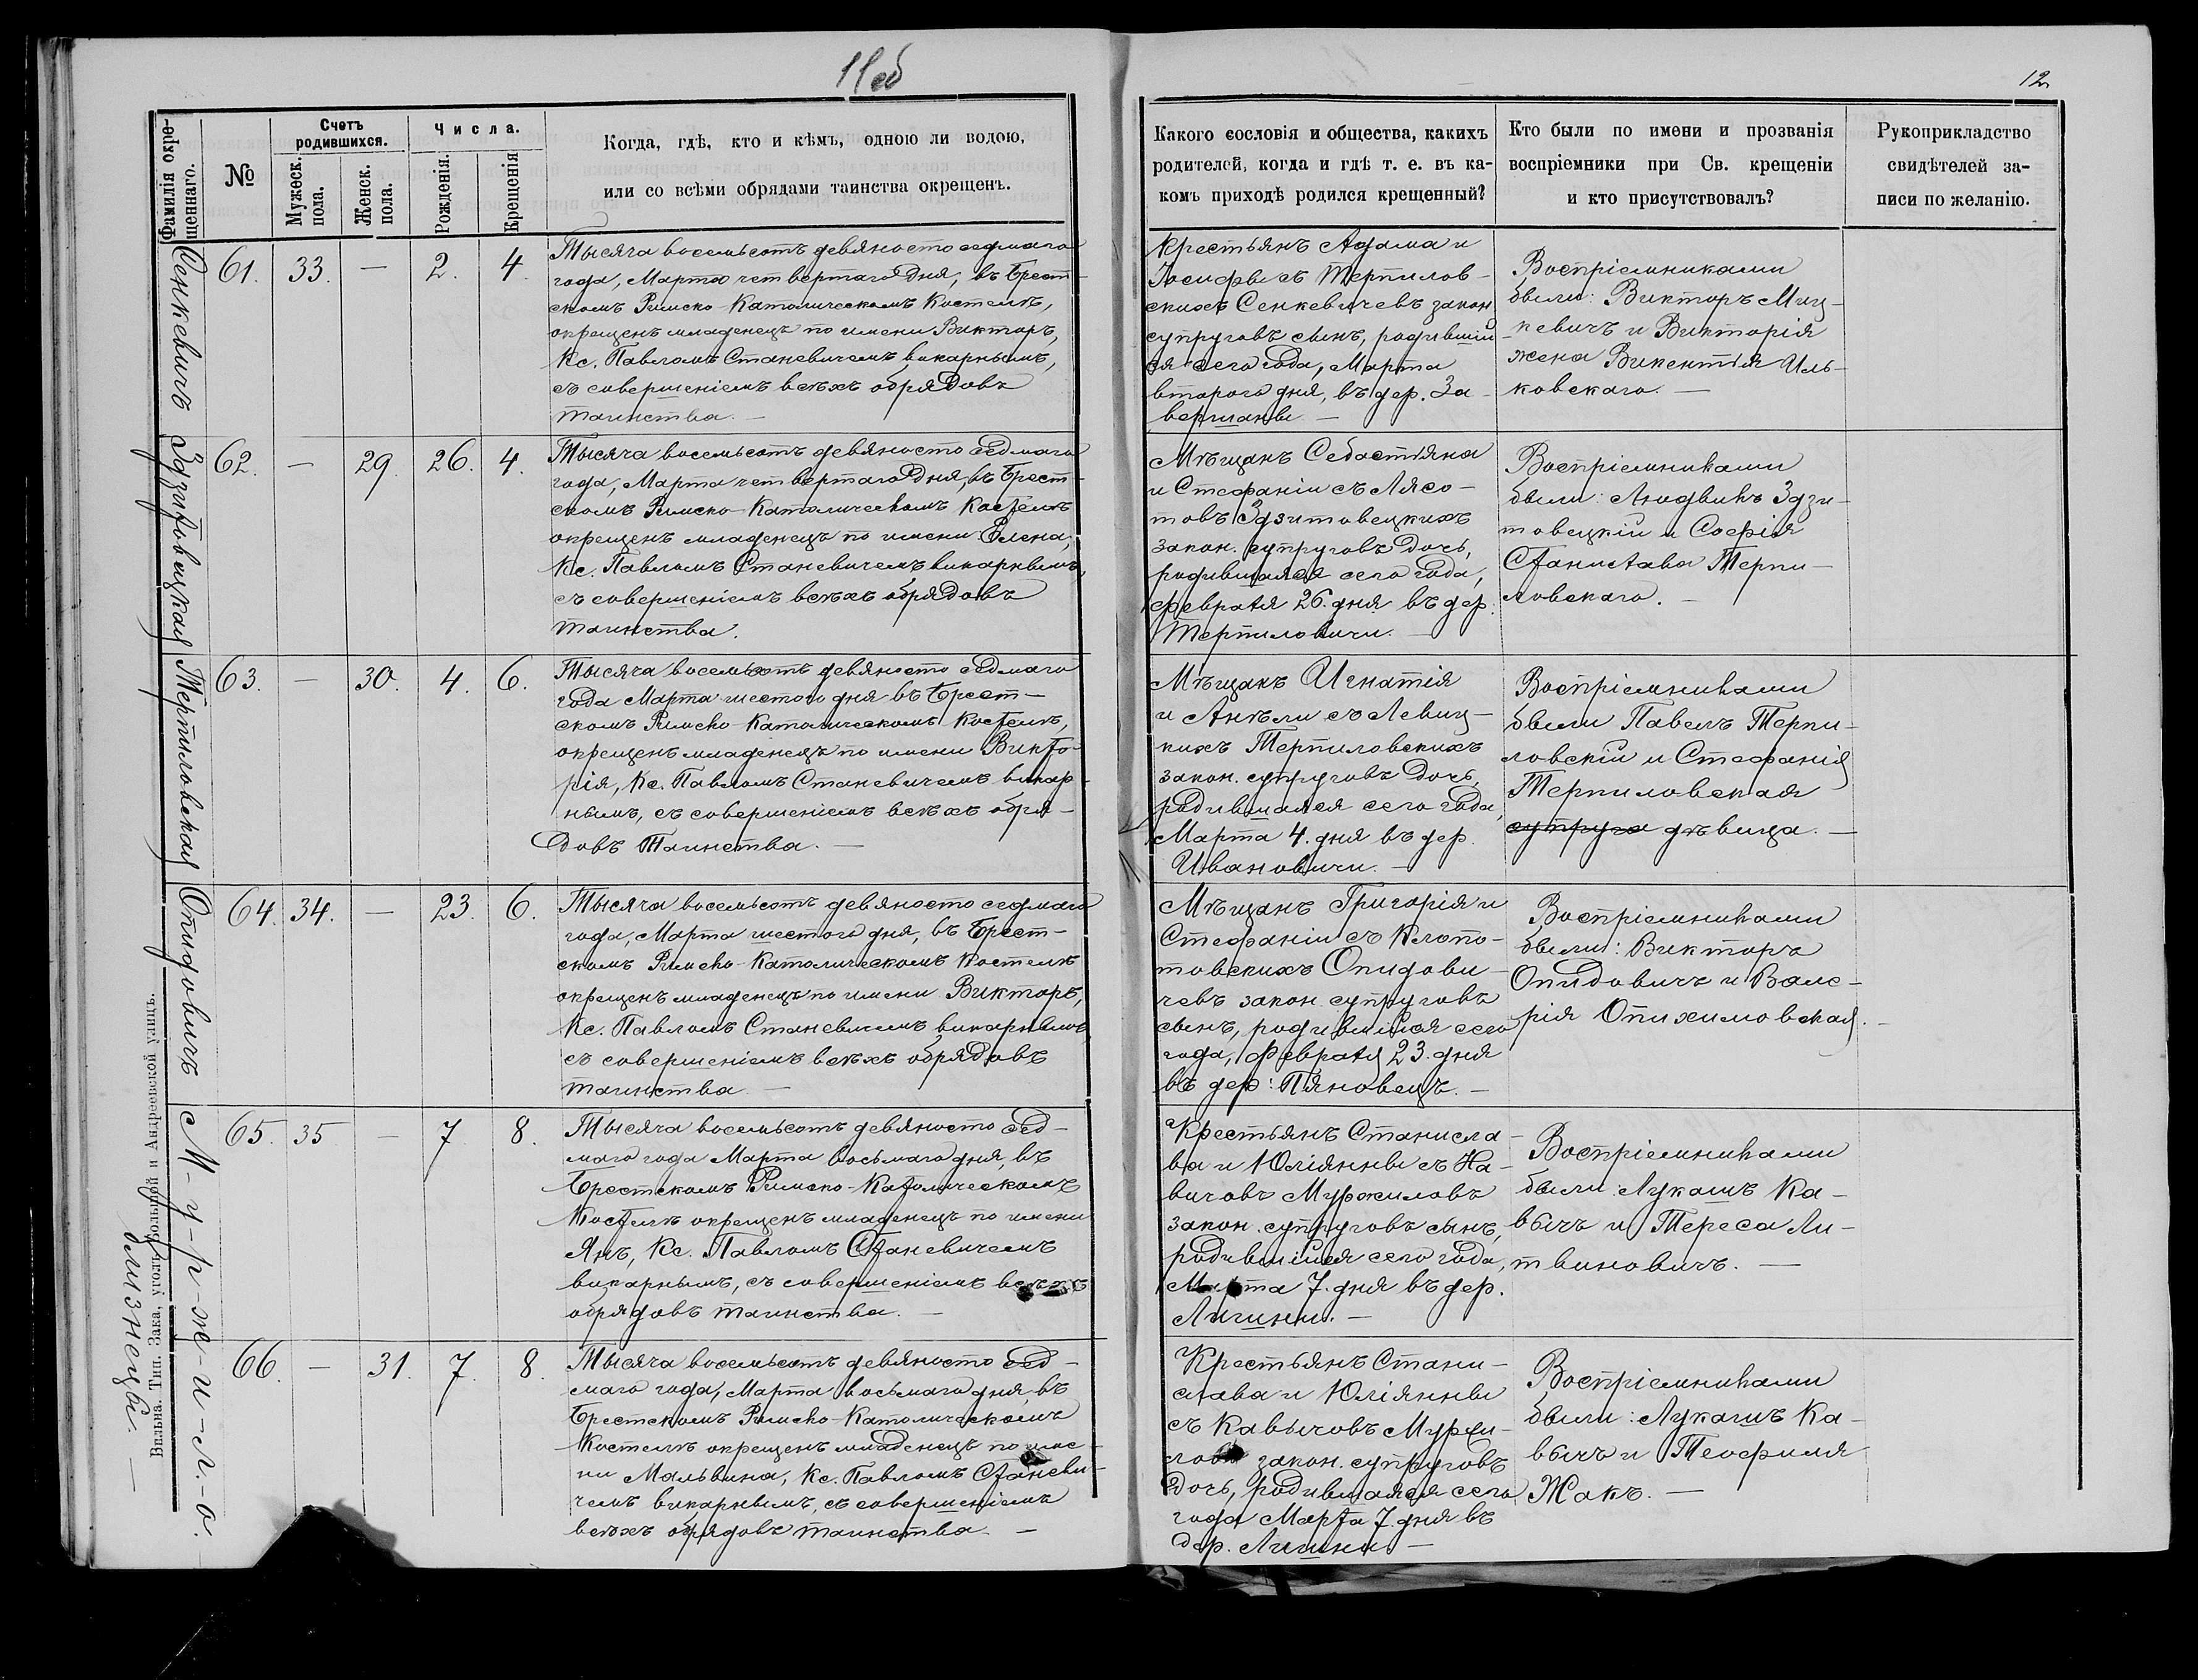 11об
12
Фамилія окре-
щеннаго.
№
Счетъ
родившихся.
Мужеск.
пола.
Женск.
пола.
Числа.
Рожденія.
Крещенія
Когда, гдѣ, кто и кѣмъ, одною ли водою,
или со всѣми обрядами таинства окрещенъ.
Какого сословія и общества, какихъ
родителей, когда и гдѣ т. е. въ ка-
комъ приходѣ родился крещенный?
Кто были по имени и прозванія
воспріемники при Св. крещеніи
и кто присутствовалъ?
Рукоприкладство
свидѣтелей за-
писи по желанію.
Сенкевичъ
61. 33. — 2. 4.
Тысяча восемьсотъ девяносто седмаго
года, Марта четвертаго дня, въ Брест-
скомъ Римско-Католическомъ Костелѣ,
окрещенъ младенецъ по имени Викторъ,
Кс. Павломъ Станевичемъ, викарнымъ,
съ совершеніемъ всѣхъ обрядовъ
таинства. —
Крестьянъ Адама и
Іосифы съ Терпилов-
скихъ Сенкевичевъ закон.
супруговъ сынъ, родившій
ся сего года, Марта
втораго дня, въ дер. За-
вершаны —
Воспріемниками
были: Викторъ Миц-
кевичъ и Викторія
жена Викентія Иль-
ковскаго. —
Здзитовецкая
62. — 29. 26. 4.
Тысяча восемьсотъ девяносто седмаго
года, Марта четвертаго дня, въ Брест-
скомъ Римско-Католическомъ Костелѣ
окрещенъ младенецъ по имени Елена,
Кс. Павломъ Станевичемъ викарнымъ,
съ совершеніемъ всѣхъ обрядовъ
таинства.
Мѣщанъ Себастіяна
и Стефаніи съ Лясо-
товъ Здзитовецкихъ
закон. супруговъ дочь,
родившаяся сего года,
февраля 26. дня въ дер:
Терпиловичи. —
Воспріемниками
были: Людвикъ Здзи-
товецкій и Софія
Станислава Терпи-
ловскаго. —
Терпиловская
63. — 30. 4. 6.
Тысяча восемьсотъ девяносто седмаго
года Марта шестого дня въ Брест-
скомъ Римско-Католическомъ Костелѣ,
окрещенъ младенецъ по имени Викто-
рія, Кс. Павломъ Станевичемъ викар-
нымъ, съ совершеніемъ всѣхъ обря-
довъ Таинства. —
Мѣщанъ Игнатія
и Анѣли съ Левиц-
кихъ Терпиловскихъ
закон. супруговъ дочь,
родившаяся сего года,
Марта 4. дня въ дер.
Ивановичи. —
Воспріемниками
были Павелъ Терпи-
ловскій и Стефанія
Терпиловская
супруга дѣвица. —
Опидовичъ
64. 34. — 23. 6.
Тысяча восемьсотъ девяносто седмаго
года, Марта шестого дня, въ Брест-
скомъ Римско-Католическомъ Костелѣ
окрещенъ младенецъ по имени Викторъ,
Кс. Павломъ Станевичемъ, викарнымъ,
съ совершеніемъ всѣхъ обрядовъ
таинства —
Мѣщанъ Григорія и
Стефаніи съ Клопо-
товскихъ Опидови-
чевъ закон. супруговъ
сынъ, родившійся сего
года, Февраля 23. дня
въ дер: Пяновецъ. —
Воспріемниками
были: Викторъ
Опидовичъ и Вале-
рія Опихимовская. —
М-у-р-ж-и-л-о.
близнецы. —
65. 35 — 7 8.
Тысяча восемьсотъ девяносто сед-
маго года Марта восьмаго дня, въ
Брестскомъ Римско-Католическомъ
Костелѣ окрещенъ младенецъ по имени
Янъ, Кс. Павломъ Станевичемъ
викарнымъ, съ совершеніемъ всѣхъ
обрядовъ таинства. —
Крестьянъ Станисла-
ва и Юліянны съ Ка-
вычовъ Муржиловъ
закон. супруговъ сынъ,
родившійся сего года,
Марта 7. дня въ дер.
Лишни. —
Воспріемниками
были: Лукашъ Ка-
вычъ и Тереса Ли-
твиновичъ. —
66. — 31. 7. 8.
Тысяча восемьсотъ девяносто сед-
маго года, Марта восьмаго дня, въ
Брестскомъ Римско-Католическомъ
Костелѣ окрещенъ младенецъ по име-
ни Мальвина, Кс. Павломъ Станеви-
чемъ викарнымъ, съ совершеніемъ
всѣхъ обрядовъ таинства. —
Крестьянъ Стани-
слава и Юліянны
съ Кавычовъ Муржи-
ловъ закон. супруговъ
дочь, родившаяся сего
года Марта 7. дня въ
дер. Лишни —
Воспріемниками
были: Лукашъ Ка-
вычъ и Теофиля
Жакъ. —
Вильна. Тип. Зака, уголъ Большой и Андреевской улицъ.